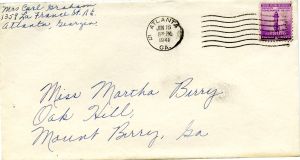 Mrs Carl Graham
1359 La France St. N.E.
Atlanta, Georgia
ATLANTA
JUN 19
1941
GA.
Miss Martha Berry,
Oak Hill,
Mount Berry, Ga